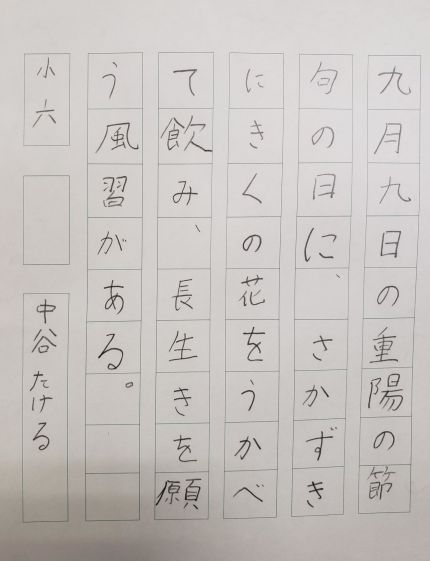 九月九日の重陽の節
句の日に、さかずき
にきくの花をうかべ
て飲み、長生きを願
う風習がある。
小六
中谷たける